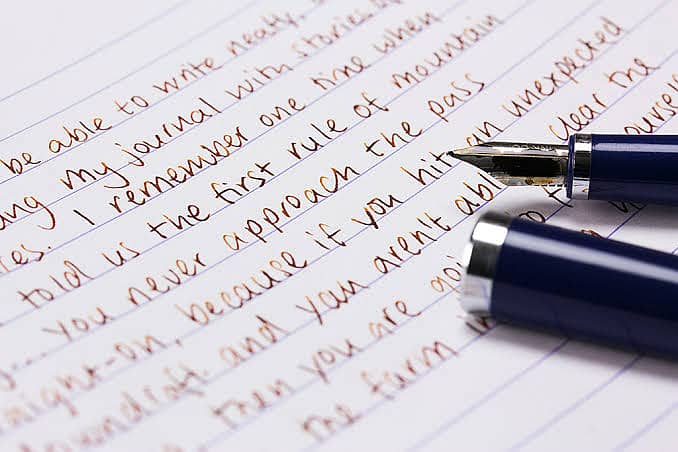 be able to write neatly,
my journal with stories
I remember one time when
told us the first rule of mountain
you never approach the pass
-on, because if you hit an unexpected
and you aren't clear the
then you are
the farm